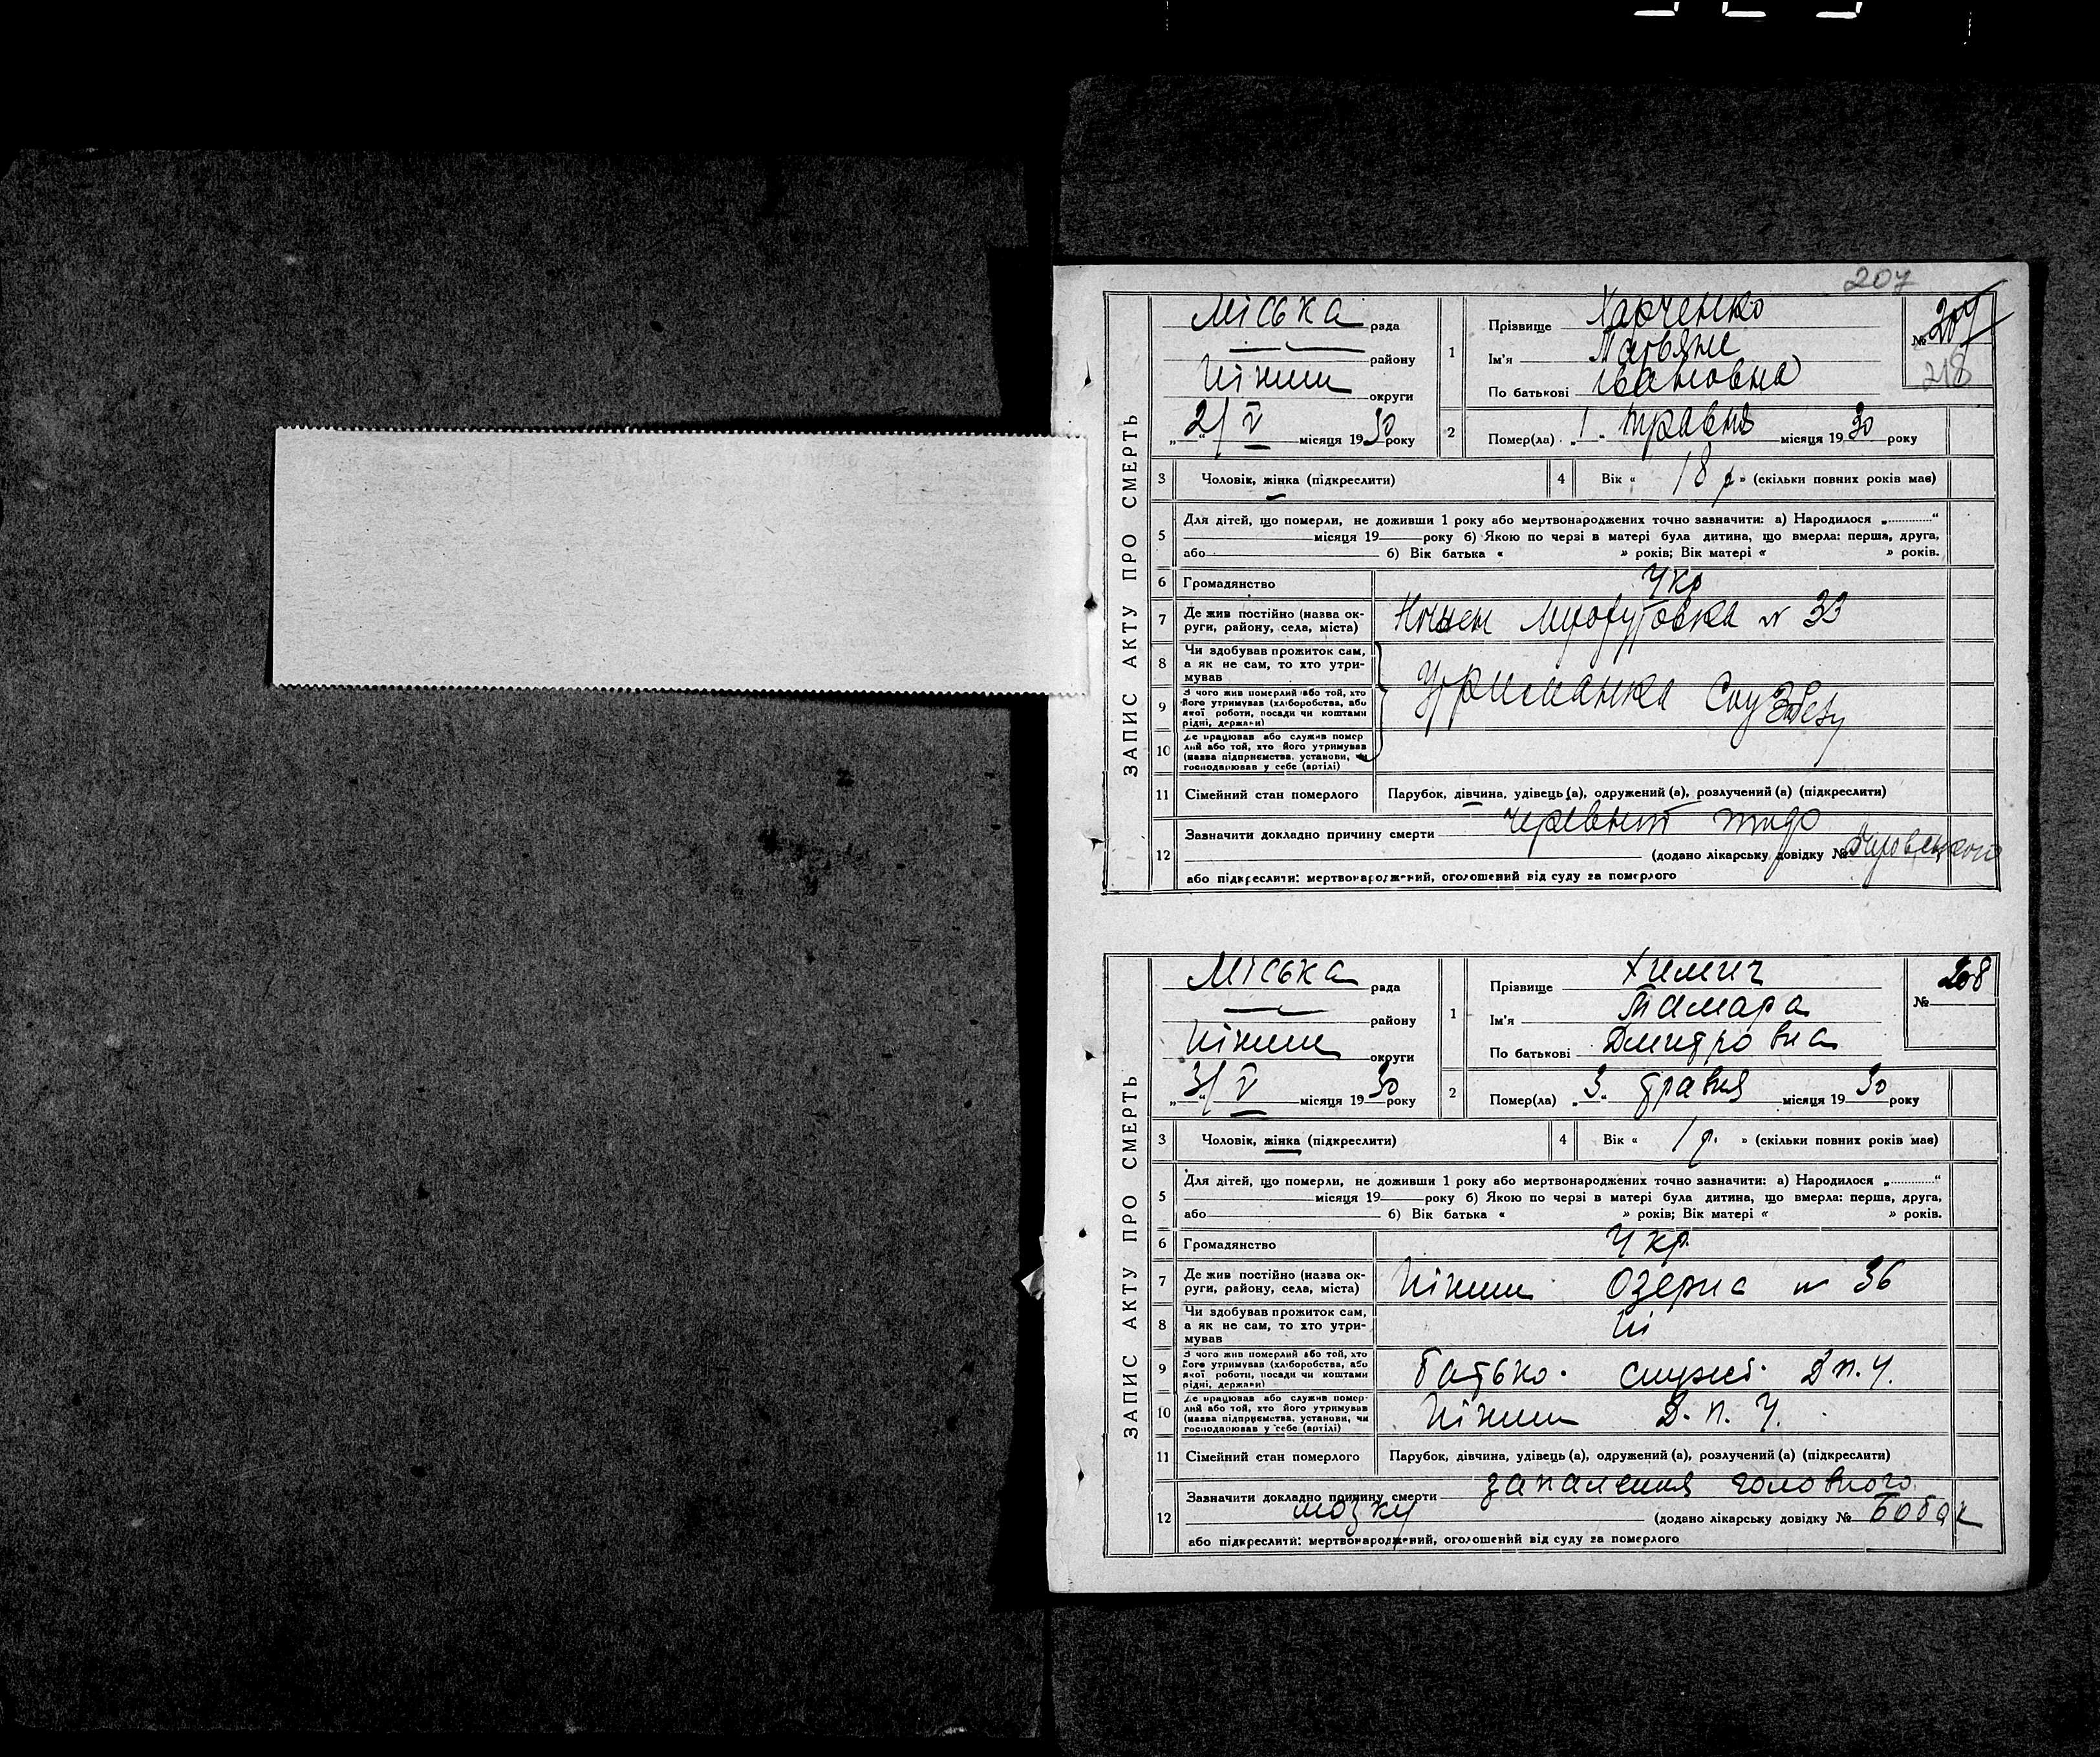 207
ЗАПИС АКТУ ПРО СМЕРТЬ
Міська рада
району
Ніжин округи
„2“ V місяця 1930 року
1 Прізвище Харченко
Ім'я Татьяне
По батькові Івановна
№ 207
218
2 Помер(ла) „1“ травня місяця 1930 року
3 Чоловік, жінка (підкреслити)
4 Вік « 18 р » (скільки повних років має)
5 Для дітей, що померли, не доживши 1 року або мертвонароджених точно зазначити: а) Народилося „............“
місяця 19 року б) Якою по черзі в матері була дитина, що вмерла: перша, друга,
або б) Вік батька « » років; Вік матері « » років.
6 Громадянство Укр
7 Де жив постійно (назва округи, району, села, міста) № 33
8 Чи здобував прожиток сам, а як не сам, то хто утримував
Утриманка Соц
9 З чого жив померлий або той, хто його утримував (хліборобства, або якої роботи, посади чи коштами рідні, держави)
10 Де працював або служив померлий або той, хто його утримував (назва підприємства, установи, чи господарював у себе (артілі)
11 Сімейний стан померлого Парубок, дівчина, удівець (а), одружений (а), розлучений (а) (підкреслити)
12 Зазначити докладно причину смерти черевний тиф
(додано лікарську довідку №
або підкреслити: мертвонароджений, оголошений від суду за померлого
ЗАПИС АКТУ ПРО СМЕРТЬ
Міська рада
району
Ніжин округи
„3“ V місяця 1930 року
1 Прізвище Химич
Ім'я Тамара
По батькові Дмитровна
№ 208
2 Помер(ла) „3“ травня місяця 1930 року
3 Чоловік, жінка (підкреслити)
4 Вік « 1 р. » (скільки повних років має)
5 Для дітей, що померли, не доживши 1 року або мертвонароджених точно зазначити: а) Народилося „............“
місяця 19 року б) Якою по черзі в матері була дитина, що вмерла: перша, друга,
або б) Вік батька « » років; Вік матері « » років.
6 Громадянство Укр
7 Де жив постійно (назва округи, району, села, міста) Ніжин Озерна № 36
8 Чи здобував прожиток сам, а як не сам, то хто утримував Ні
9 З чого жив померлий або той, хто його утримував (хліборобства, або якої роботи, посади чи коштами рідні, держави) батько. служб. Д п. У.
10 Де працював або служив померлий або той, хто його утримував (назва підприємства, установи, чи господарював у себе (артілі) Ніжин Д. п. У.
11 Сімейний стан померлого Парубок, дівчина, удівець (а), одружений (а), розлучений (а) (підкреслити)
12 Зазначити докладно причину смерти запалення головного
мозку (додано лікарську довідку № Бобок
або підкреслити: мертвонароджений, оголошений від суду за померлого